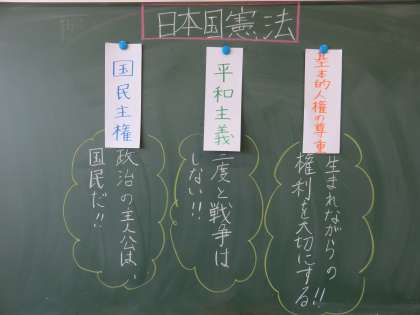 日本国憲法
基本的人権の尊重
生まれながらの
権利を大切にする!!
平和主義
二度と戦争は
しない!!
国民主権
政治の主人公は、
国民だ!!